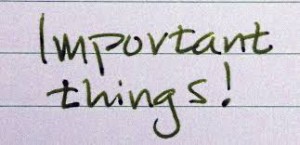 Important
things!